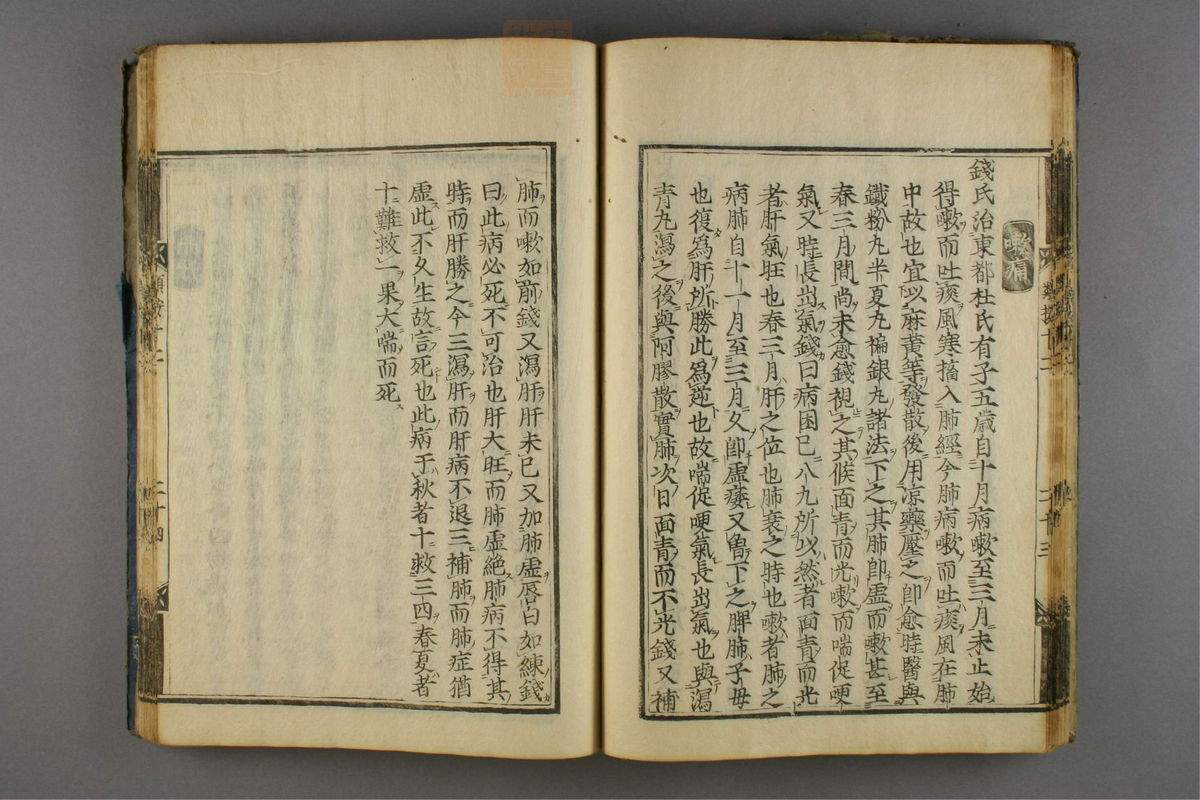 嗽
錢氏治東都杜氏有子五歲自十月病嗽至三月未止始
得嗽而吐痰風寒搐入肺經今肺病嗽而吐痰風在肺
中故也宜以麻黃等發散後用涼藥壓之卽愈時醫與
鐵粉丸半夏丸褊銀丸諸法下之其肺卽虛而嗽甚至
春三月間尚未愈錢視之其候面青而光嗽而喘促哽
氣又時長出氣錢曰病困已八九所以然者面青而光
者肝氣旺也春三月肝之位也肺衰之時也嗽者肺之
病肺自十一月至三月久卽虛痿又魯下之脾肺子母
也復爲肝所勝此爲逆也故喘促哽氣長出氣也與瀉
青丸瀉之後與阿膠散實肺次日面青而不光錢又補
二十三
肺而嗽如前錢又瀉肝肝未已又加肺虛唇白如練錢
曰此病必死不可治也肝大旺而肺虛絶肺病不得其
時而肝勝之今三瀉肝而肝病不退三補肺而肺症猶
虛此不久生故言死也此病于秋者十救三四春夏者
十難救一果大喘而死
類案十二
二十四